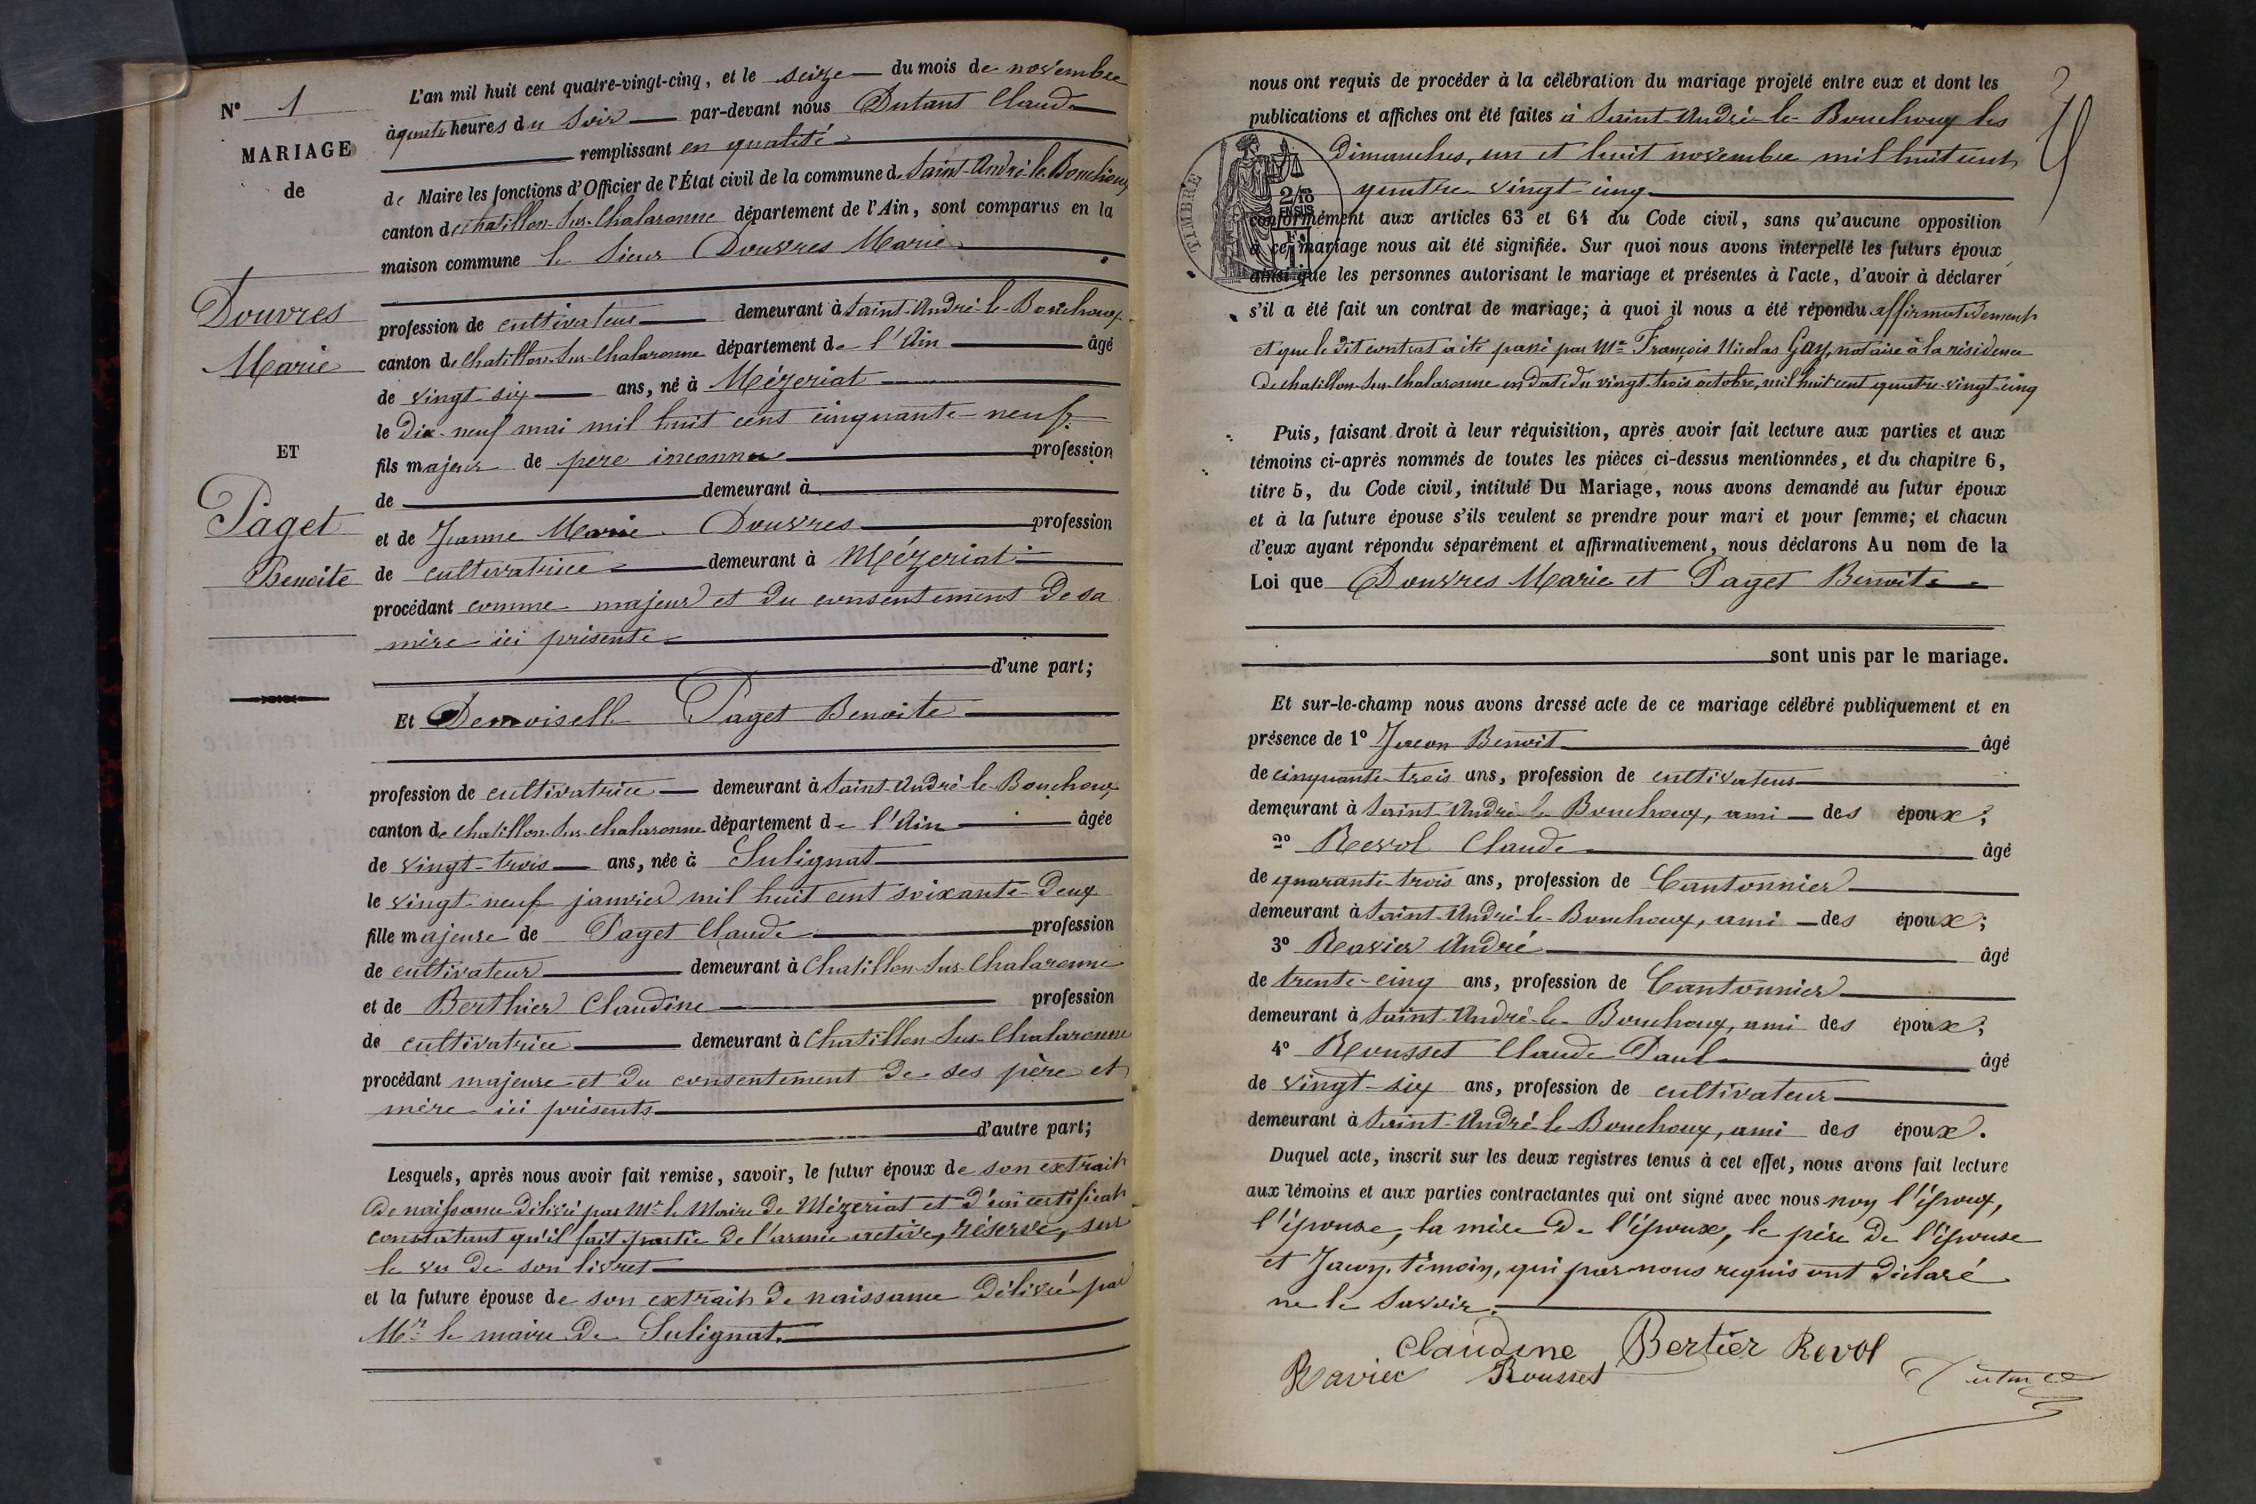 N° 1
MARIAGE
de
Douvres
Marie
ET
Paget
Benoite
L'an mil huit cent quatre-vingt-cinq, et le seize du mois de novembre
à quatre heures du soir par-devant nous Dutant Claude
remplissant en qualité
de Maire les fonctions d'Officier de l'État civil de la commune de Saint-André-le-Bouchoux
canton de chatillon-sur-Chalaronne département de l'Ain, sont comparus en la
maison commune le sieur Douvres Marie
profession de cultivateur demeurant à Saint-André-le-Bouchoux
canton de Chatillon-sur-Chalaronne département de l'Ain âgé
de vingt six ans, né à Mézeriat
le dix-neuf mai mil huit cent cinquante-neuf
fils majeur de père inconnu profession
de demeurant à
et de Jeanne Marie Douvres profession
de cultivatrice demeurant à Mézeriat
procédant comme majeur et du consentement de sa
mère ici présente
d'une part;
Et Demoiselle Paget Benoite
profession de cultivatrice demeurant à Saint-André-le-Bouchoux
canton de Chatillon-sur-Chalaronne département de l'Ain âgée
de vingt-trois ans, née à Sulignat
le vingt-neuf janvier mil huit cent soixante-deux
fille majeure de Paget Claude profession
de cultivateur demeurant à Chatillon-sur-Chalaronne
et de Berthier Claudine profession
de cultivatrice demeurant à Chatillon-sur-Chalaronne
procédant majeure et du consentement de ses père et
mère ici présents
d'autre part;
Lesquels, après nous avoir fait remise, savoir, le futur époux de son extrait
de naissance délivré par Mr le Maire de Mézeriat et d'un certificat
constatant qu'il fait partie de l'armée active, réserve, sur
le vu de son livret
et la future épouse de son extrait de naissance délivré par
Mr le maire de Sulignat.
nous ont requis de procéder à la célébration du mariage projeté entre eux et dont les
publications et affiches ont été faites à Saint-André-le-Bouchoux les
dimanches, un et huit novembre mil huit cent
quatre-vingt-cinq
TIMBRE
2/10
EN SUS
conformément aux articles 63 et 64 du Code civil, sans qu'aucune opposition
à ce mariage nous ait été signifiée. Sur quoi nous avons interpellé les futurs époux,
ainsi que les personnes autorisant le mariage et présentes à l'acte, d'avoir à déclarer
s'il a été fait un contrat de mariage; à quoi il nous a été répondu affirmativement
et que le dit contrat a été passé par Me François Nicolas Gay, notaire à la résidence
de chatillon-sur-Chalaronne en date du vingt-trois octobre, mil huit cent quatre-vingt-cinq
Puis, faisant droit à leur réquisition, après avoir fait lecture aux parties et aux
témoins ci-après nommés de toutes les pièces ci-dessus mentionnées, et du chapitre 6,
titre 5, du Code civil, intitulé Du Mariage, nous avons demandé au futur époux
et à la future épouse s'ils veulent se prendre pour mari et pour femme; et chacun
d'eux ayant répondu séparément et affirmativement, nous déclarons Au nom de la
Loi que Douvres Marie et Paget Benoite
sont unis par le mariage.
Et sur-le-champ nous avons dressé acte de ce mariage célébré publiquement et en
présence de 1° Jacon Benoit âgé
de cinquante-trois ans, profession de cultivateur
demeurant à Saint-André-le-Bouchoux, ami des époux;
2° Revol Claude âgé
de quarante-trois ans, profession de Cantonnier
demeurant à Saint-André-le-Bouchoux, ami des époux;
3° Ravier André âgé
de trente-cinq ans, profession de Cantonnier
demeurant à Saint-André-le-Bouchoux, ami des époux;
4° Rousset Claude Paul âgé
de vingt-six ans, profession de cultivateur
demeurant à Saint-André-le-Bouchoux, ami des époux.
Duquel acte, inscrit sur les deux registres tenus à cet effet, nous avons fait lecture
aux témoins et aux parties contractantes qui ont signé avec nous non l'époux,
l'épouse, la mère de l'époux, le père de l'épouse
et Jacon, témoin, qui par nous requis ont déclaré
ne le savoir.
Claudine Bertier Revol
Ravier Rousset Dutant